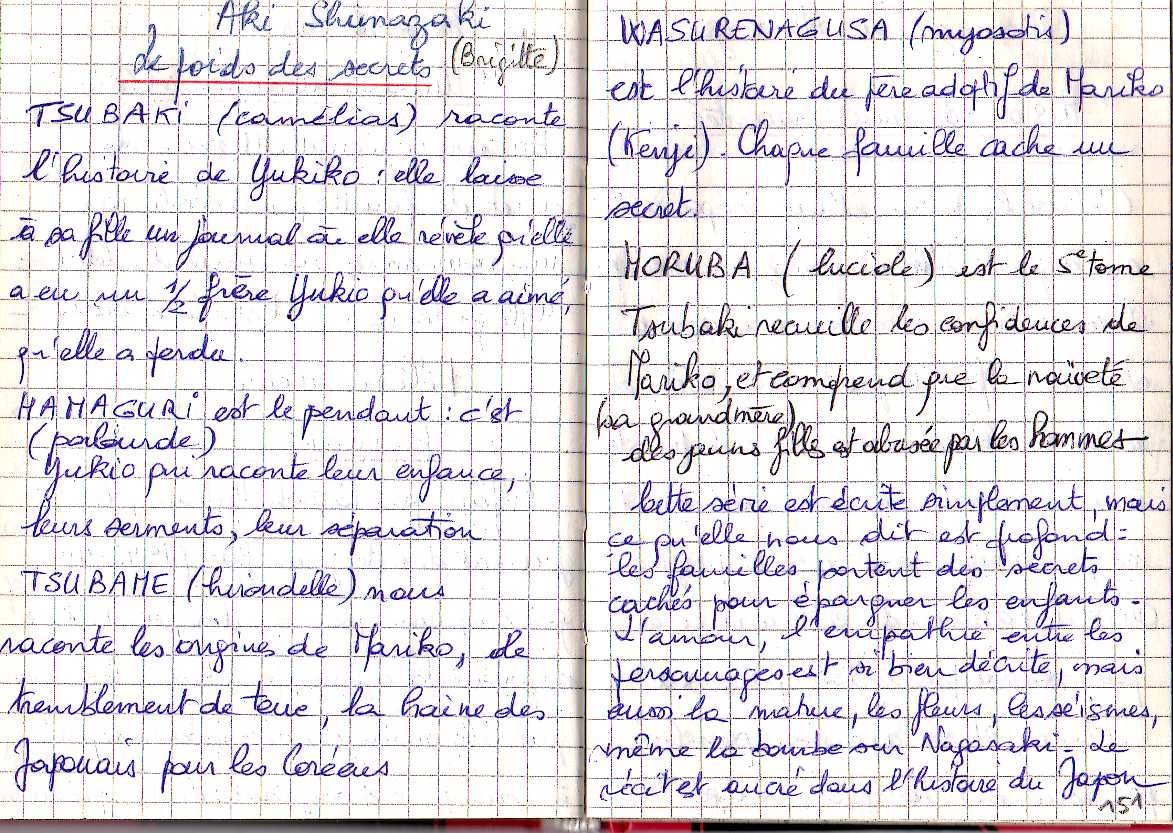 Aki Shimazaki
Le poids des secrets (Brigitte)
TSUBAKI (camélias) raconte
l'histoire de Yukiko : elle laisse
à sa fille un journal où elle révèle qu'elle
a eu un 1/2 frère Yukio qu'elle a aimé,
qu'elle a perdu.
HAMAGURI est le pendant : c'est
(palourde)
Yukio qui raconte leur enfance,
leurs serments, leur séparation
TSUBAME (hirondelle) nous
raconte les origines de Mariko, le
tremblement de terre, la haine des
Japonais pour les Coréens
WASURENAGUSA (myosotis)
est l'histoire du père adoptif de Mariko
(Kenji). Chaque famille cache un
secret.
HORUBA (luciole) est le 5e tome
Tsubaki recueille les confidences de
Mariko, et comprend que la naïveté
(sa grandmère)
des jeunes filles est abusée par les hommes
Cette série est écrite simplement, mais
ce qu'elle nous dit est profond :
les familles portent des secrets
cachés pour épargner les enfants.
L'amour, l'empathie entre les
personnages est si bien décrite, mais
aussi la nature, les fleurs, les séismes,
même la bombe sur Nagasaki. Le
récit est ancré dans l'histoire du Japon
151